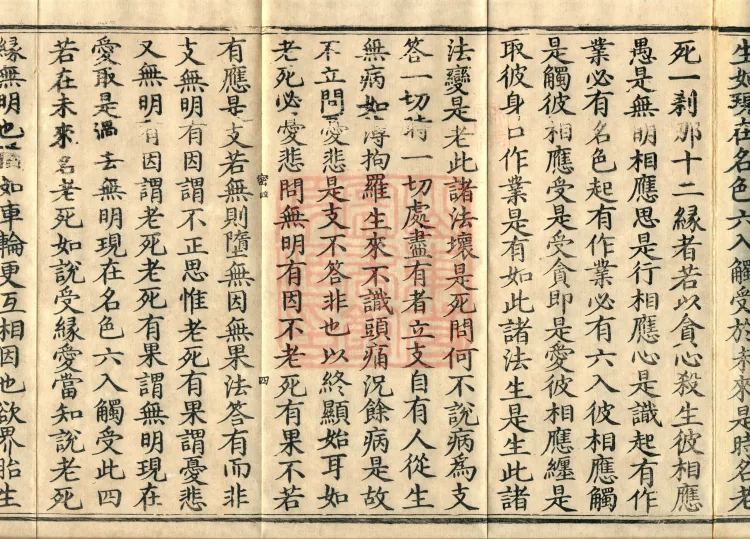 生如現在名色六入觸受於未來是時名老
死一剎那十二緣者若以貪心殺生彼相應
愚是無明相應思是行相應心是識起有作
業必有名色起有作業必有六入彼相應觸
是觸彼相應受是受貪即是愛彼相應纏是
取彼身口作業是有如此諸法生是生此諸
法變是老此諸法壞是死問何不說病爲支
答一切時一切處盡有者立支自有人從生
無病如薄拘羅生來不識頭痛況餘病是故
不立問憂悲是支不答非也以終顯始耳如
老死必憂悲問無明有因不老死有果不若
四
有應是支若無則墮無因無果法答有而非
支無明有因謂不正思惟老死有果謂憂悲
又無明有因謂老死老死有果謂無明現在
愛取是過去無明現在名色六入觸受此四
若在未來名老死如說受緣愛當知說老死
緣無明也如車輪更互相因也欲界胎生